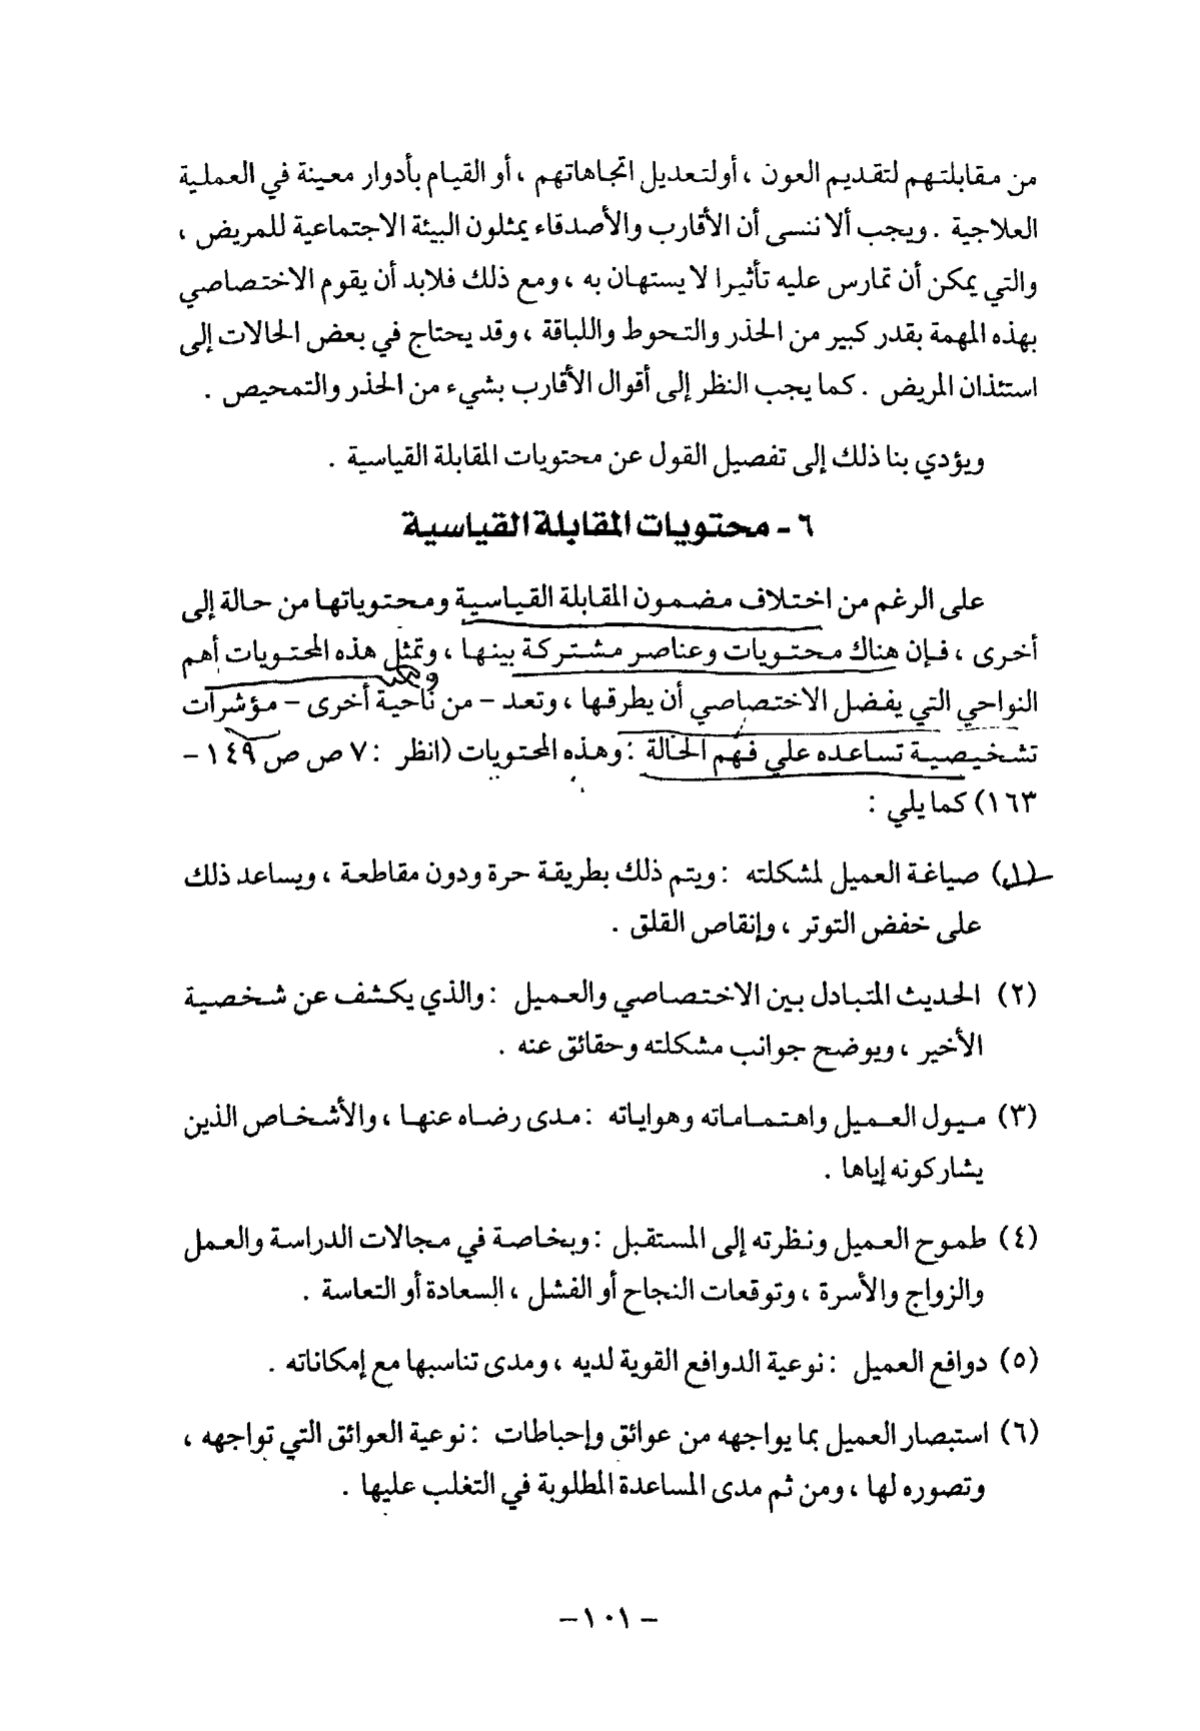 من مقابلتهم لتقديم العون ، أولتعديل اتجاهاتهم ، أو القيام بأدوار معينة في العملية
العلاجية . ويجب ألا ننسى أن الأقارب والأصدقاء يمثلون البيئة الاجتماعية للمريض ،
والتي يمكن أن تمارس عليه تأثيرا لا يستهان به ، ومع ذلك فلابد أن يقوم الاختصاصي
بهذه المهمة بقدر كبير من الحذر والتحوط واللباقة ، وقد يحتاج في بعض الحالات إلى
استئذان المريض . كما يجب النظر إلى أقوال الأقارب بشيء من الحذر والتمحيص .
ويؤدي بنا ذلك إلى تفصيل القول عن محتويات المقابلة القياسية .
٦ - محتويات المقابلة القياسية
على الرغم من اختلاف مضمون المقابلة القياسية ومحتوياتها من حالة إلى
أخرى ، فإن هناك محتويات وعناصر مشتركة بينها ، وتمثل هذه المحتويات أهم
النواحي التي يفضل الاختصاصي أن يطرقها ، وتعد - من ناحية أخرى - مؤشرات
تشخيصية تساعده علي فهم الحالة : وهذه المحتويات (انظر : ٧ ص ص ١٤٩ -
١٦٣) كما يلي :
(١) صياغة العميل لمشكلته : ويتم ذلك بطريقة حرة ودون مقاطعة ، ويساعد ذلك
على خفض التوتر ، وإنقاص القلق .
(٢) الحديث المتبادل بين الاختصاصي والعميل : والذي يكشف عن شخصية
الأخير ، ويوضح جوانب مشكلته وحقائق عنه .
(٣) ميول العميل واهتماماته وهواياته : مدى رضاه عنها ، والأشخاص الذين
يشاركونه إياها .
(٤) طموح العميل ونظرته إلى المستقبل : وبخاصة في مجالات الدراسة والعمل
والزواج والأسرة ، وتوقعات النجاح أو الفشل ، السعادة أو التعاسة .
(٥) دوافع العميل : نوعية الدوافع القوية لديه ، ومدى تناسبها مع إمكاناته .
(٦) استبصار العميل بما يواجهه من عوائق وإحباطات : نوعية العوائق التي تواجهه ،
وتصوره لها ، ومن ثم مدى المساعدة المطلوبة في التغلب عليها .
- ١٠١ -